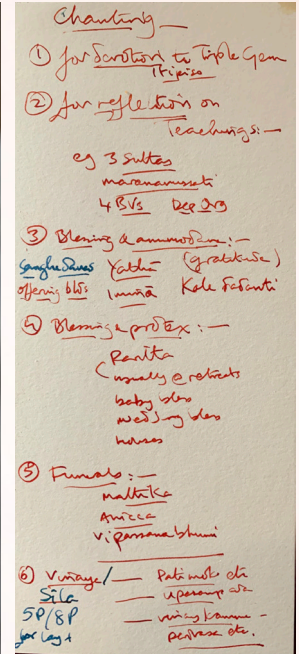 Chanting
① for devotion to Triple Gem
Itipiso
② for reflection on
Teachings:-
eg 3 Suttas
maranannussati
4 BVs Dep Org
③ Blessing & anumodana:-
Sangha danas Yathā (gratitude)
offering blds Iminā Kale Dadanti
④ Blessing & protex:-
Paritta
(usually @ retreats
baby bless
wedding bless
houses
⑤ Funerals:-
Mattika
Anicca
Vipassanabhumi
⑥ Vinaya/ — Patimok etc
Sīla — upasampada
5P/8P — vinaya kamma -
for lay + parivasa etc.